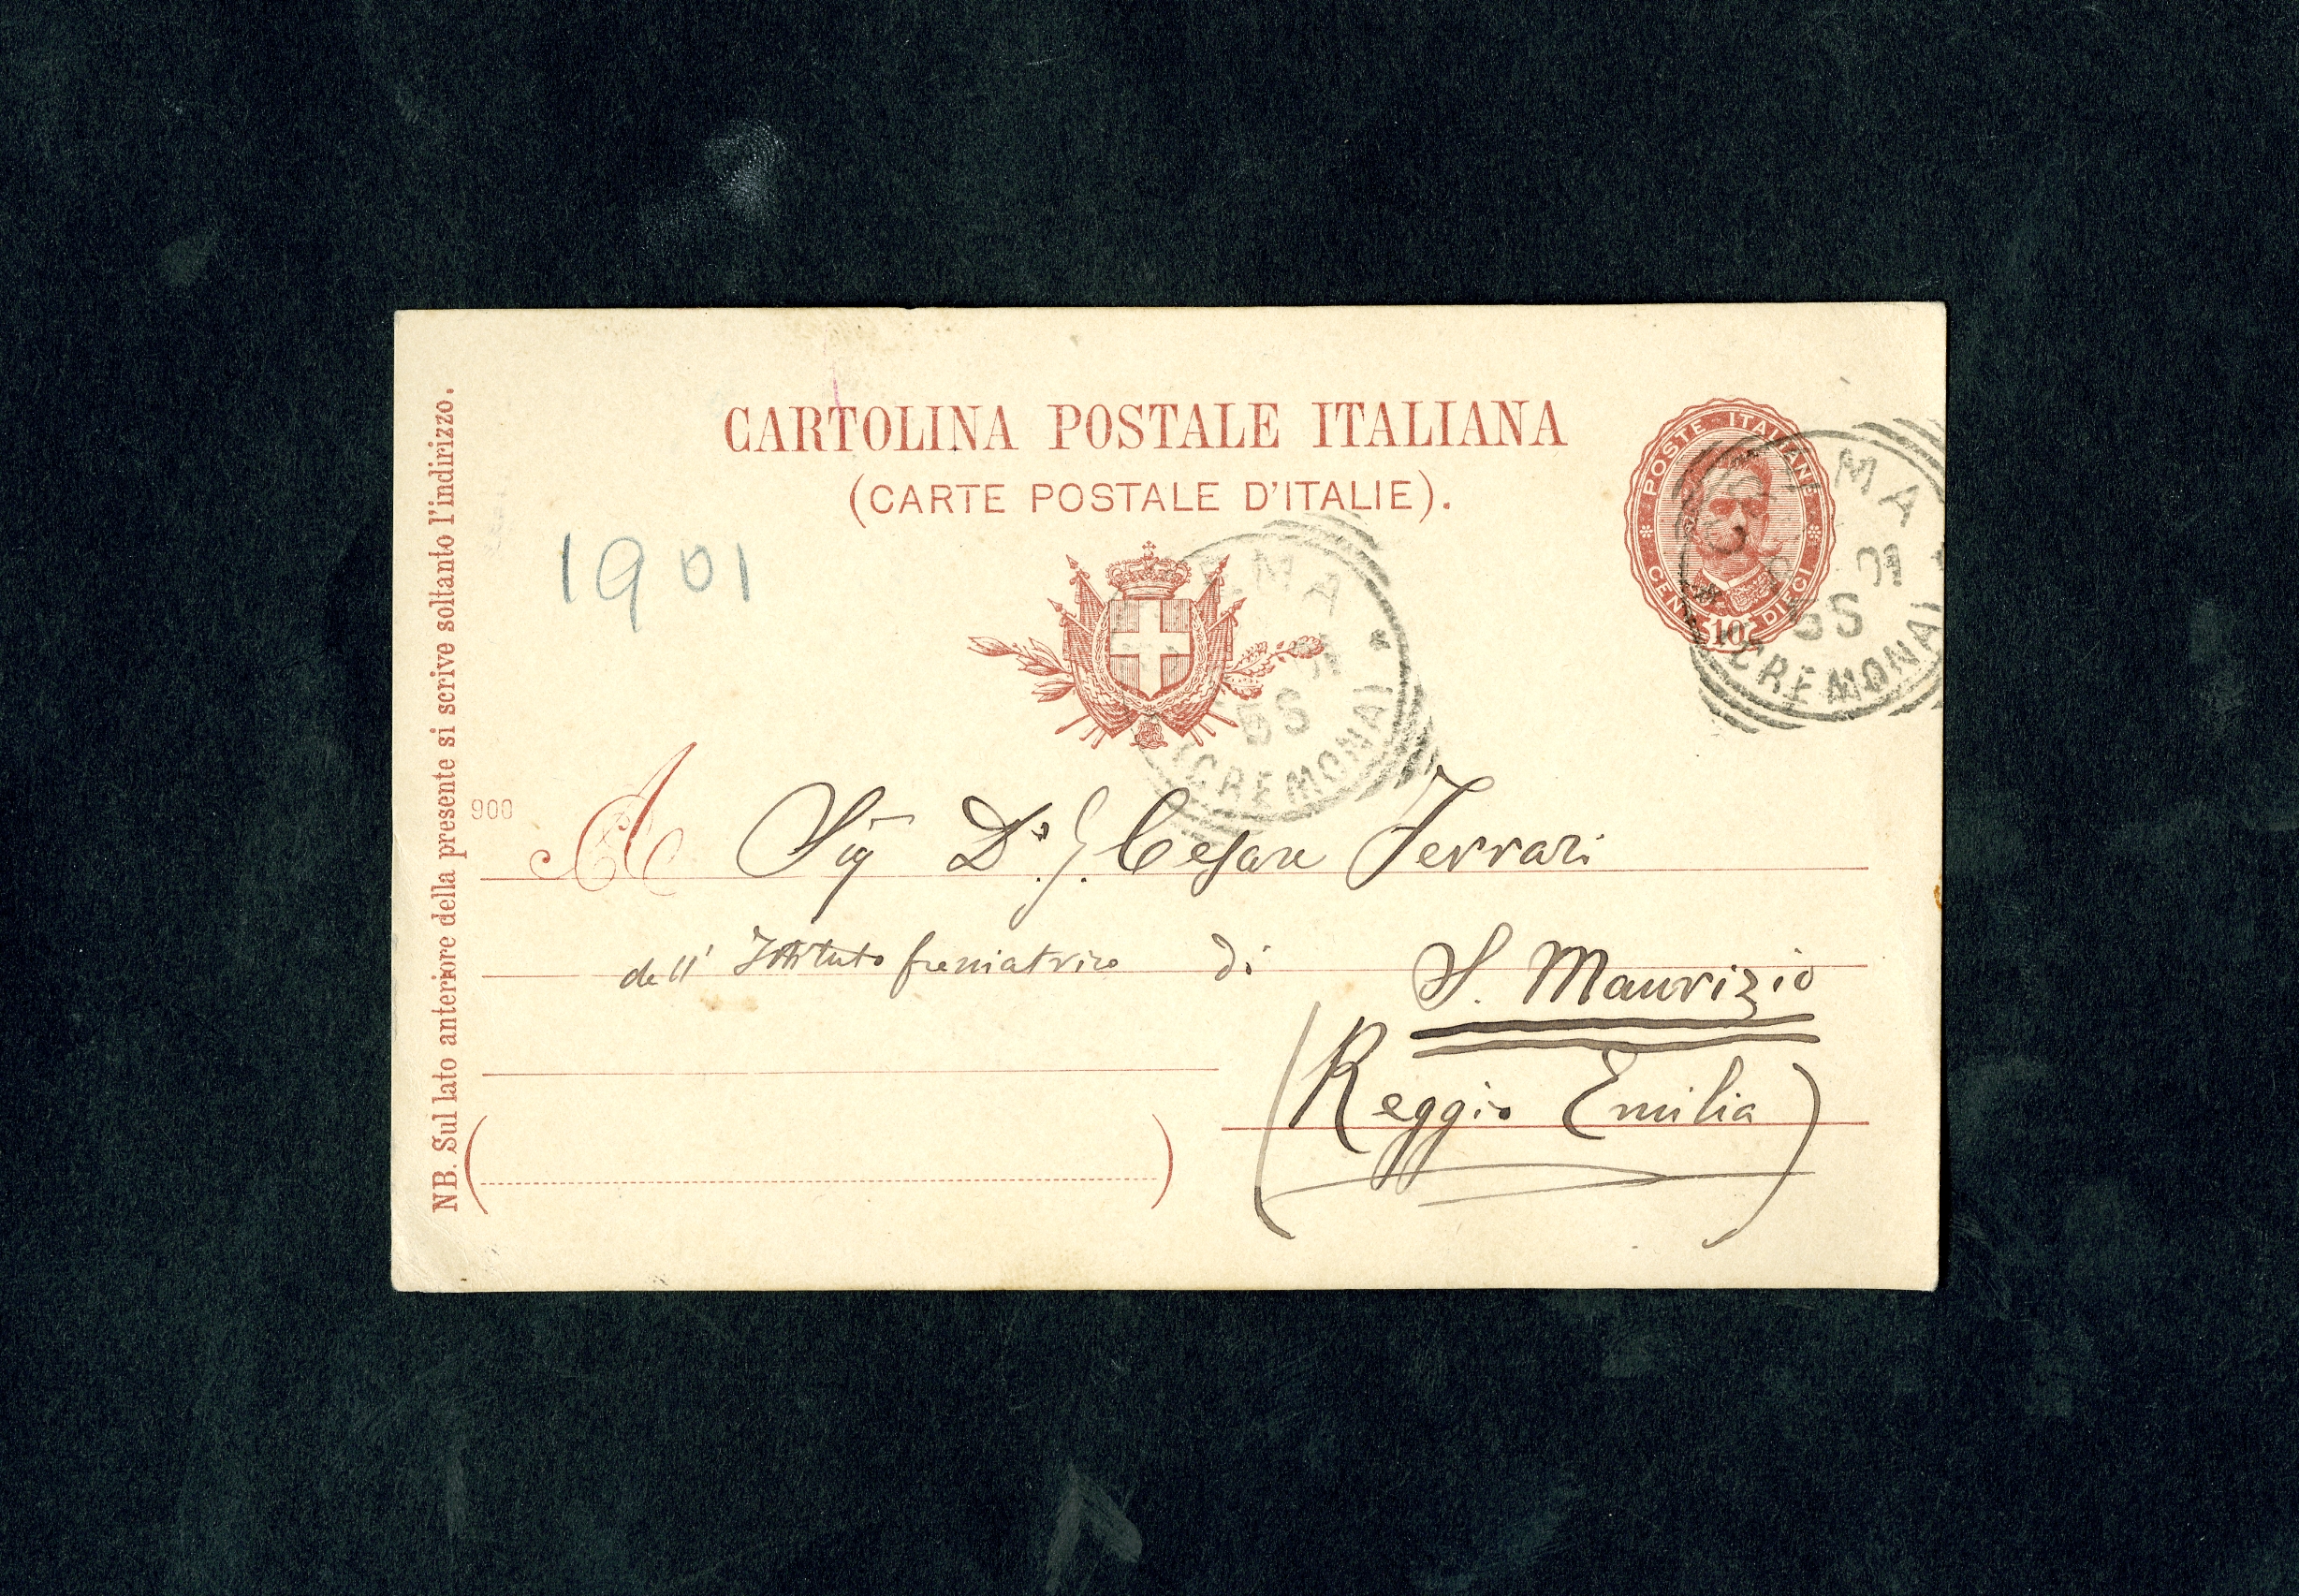 CARTOLINA POSTALE ITALIANA
(CARTE POSTALE D'ITALIE).
POSTE ITALIANE
CENT. 10 DIECI
MA
01
5S
(CREMONA)
1901
EMA
01
5S
(CREMONA)
NB. Sul lato anteriore della presente si scrive soltanto l'indirizzo.
900
A Sig Dr. G. Cesare Ferrari
dell' Istituto freniatrico di S. Maurizio
(Reggio Emilia)